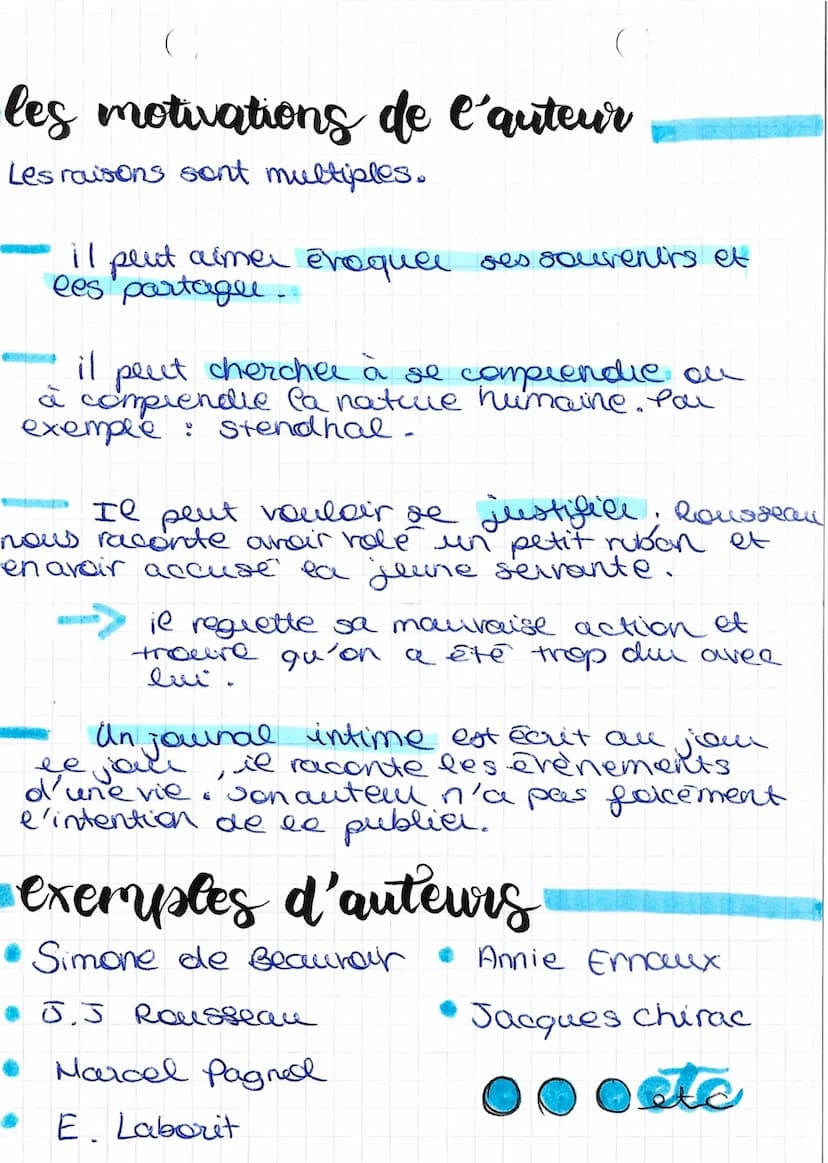 les motivations de l'auteur
Les raisons sont multiples.
il peut aimer évoquer ses souvenirs et
les partager.
il peut chercher à se comprendre ou
à comprendre la nature humaine. Par
exemple : Stendhal.
Il peut vouloir se justifier. Rousseau
nous raconte avoir volé un petit ruban et
en avoir accusé la jeune servante.
→ il regrette sa mauvaise action et
trouve qu'on a été trop dur avec
lui.
Un journal intime est écrit au jour
le jour, il raconte les évènements
d'une vie. Son auteur n'a pas forcément
l'intention de le publier.
exemples d'auteurs
• Simone de Beauvoir
• J.J Rousseau
• Marcel Pagnol
• E. Laborit
• Annie Ernaux
• Jacques Chirac
etc